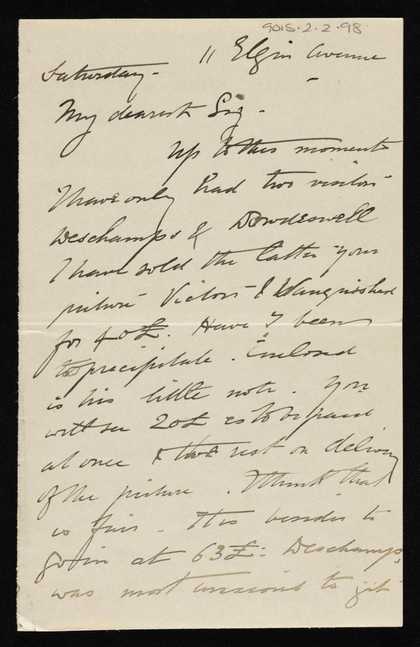 9015.2.2.98
11 Elgin Avenue
Saturday -
My dearest Sig -
Up to this moment
I have only had two visitors
Deschamps & Dowdeswell
I have sold the latter your
picture Victors & Vanquished
for 40£. Have I been
too precipitate. Enclosed
is his little note. You
will see 20£ is to be paid
at once & the rest on delivery
of the picture. I think that
is fair. This besides to
go in at 63£: Deschamps,
was most anxious to get